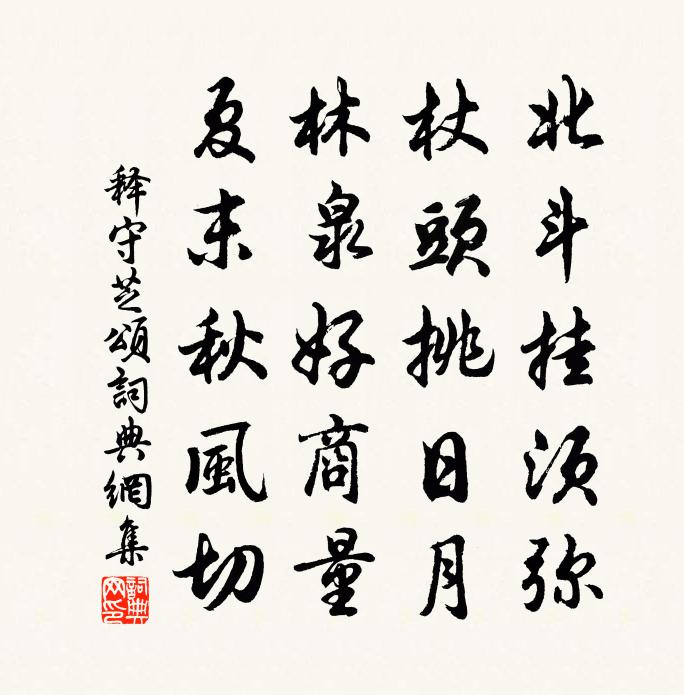 北斗挂须弥
杖頭挑日月
林泉好商量
夏末秋風切
释守芝頌詞典網集
詞典网印